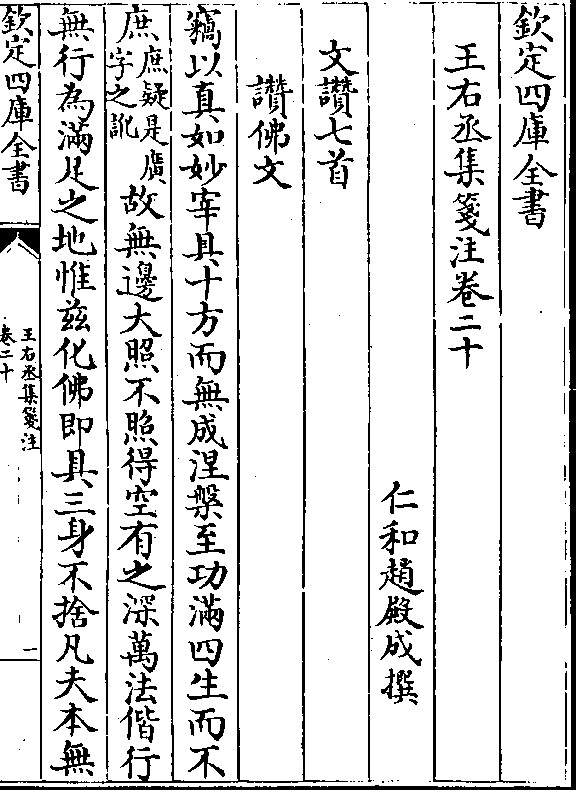 欽定四庫全書
王右丞集箋注卷二十
仁和趙殿成撰
文讚七首
讚佛文
竊以真如妙宰具十方而無成涅槃至功滿四生而不
庶庶疑是廣字之訛故無邊大照不照得空有之深萬法偕行
無行為滿足之地惟茲化佛即具三身不捨凡夫本無
欽定四庫全書
王右丞集箋注
卷二十
一